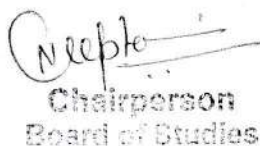 Chairperson
Board of Studies